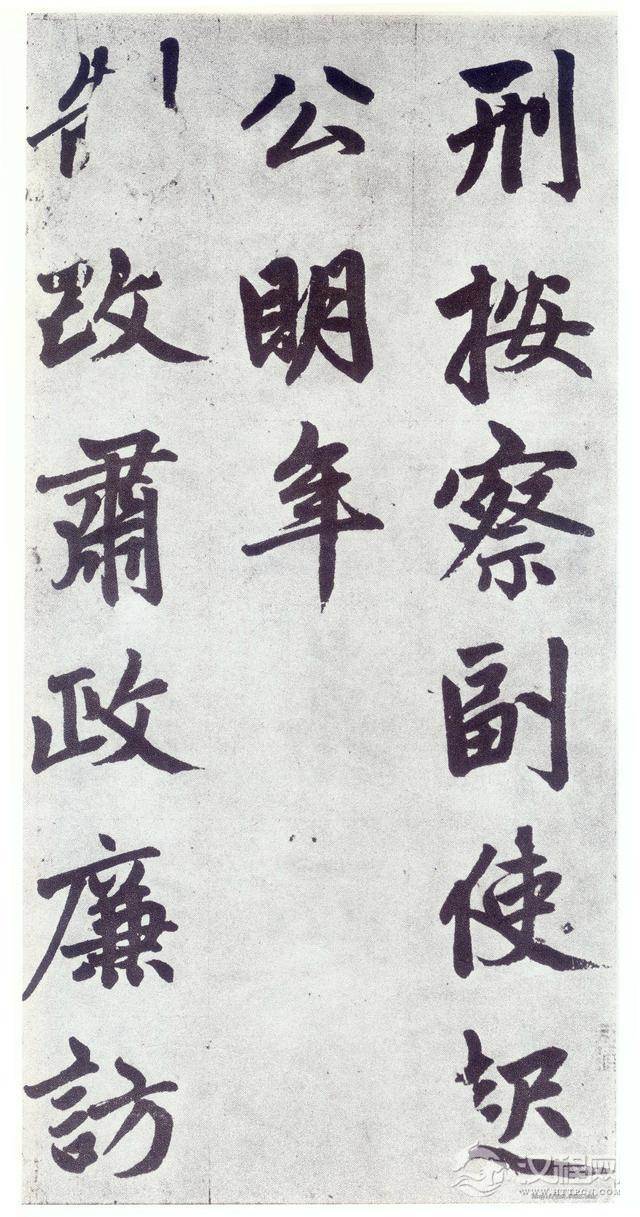 刑按察副使起
公眀年
制改肅政廉訪
汉程网
WWW.HTTPCN.COM